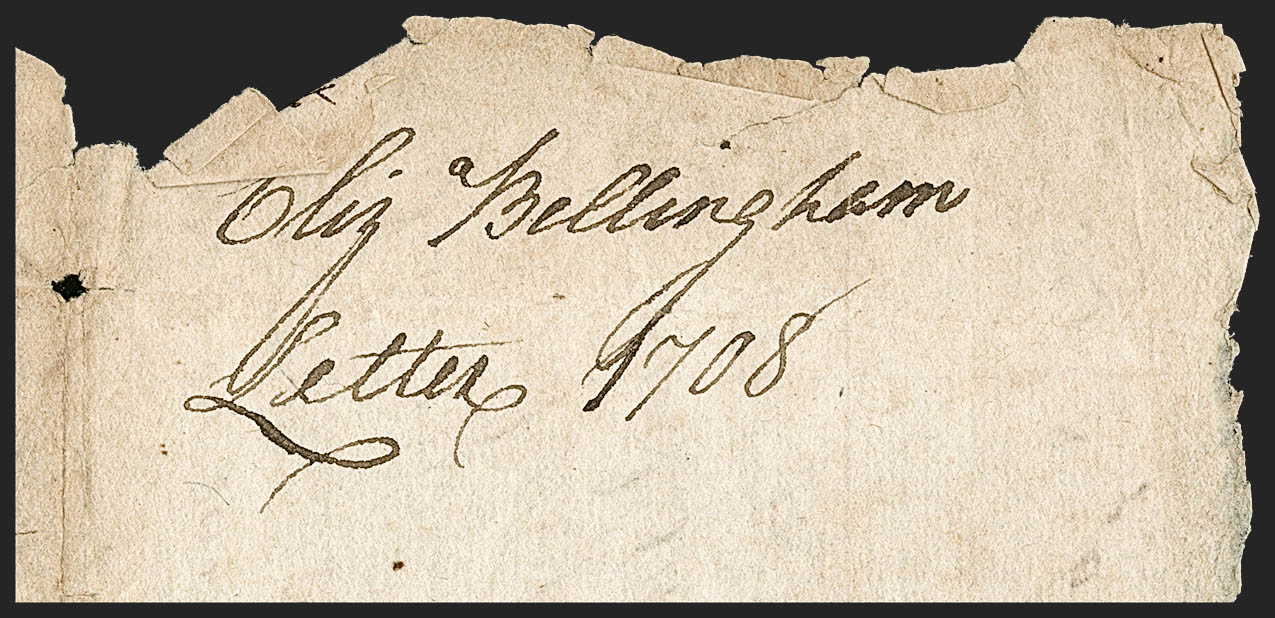 Eliz^a Bellingham
Letter 1708